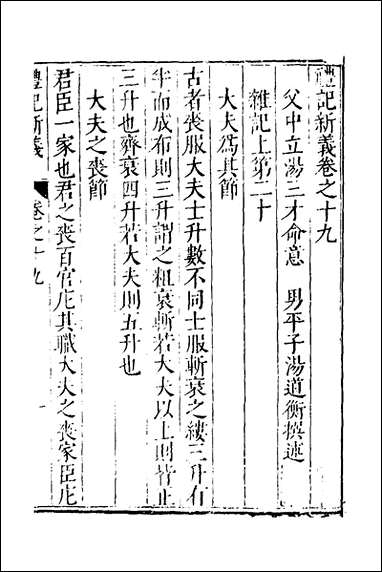 禮記新義卷之十九
父中立湯三才命意　男平子湯道衡撰述
雜記上第二十
大夫爲其節
古者喪服大夫士升數不同士服斬衰之縷三升有
半而成布則三升謂之粗衰斬若大夫以上則皆正
三升也齊衰四升若大夫則五升也
大夫之喪節
君臣一家也君之喪百官庀其職大夫之喪家臣庀
禮記新義　卷之十九　一